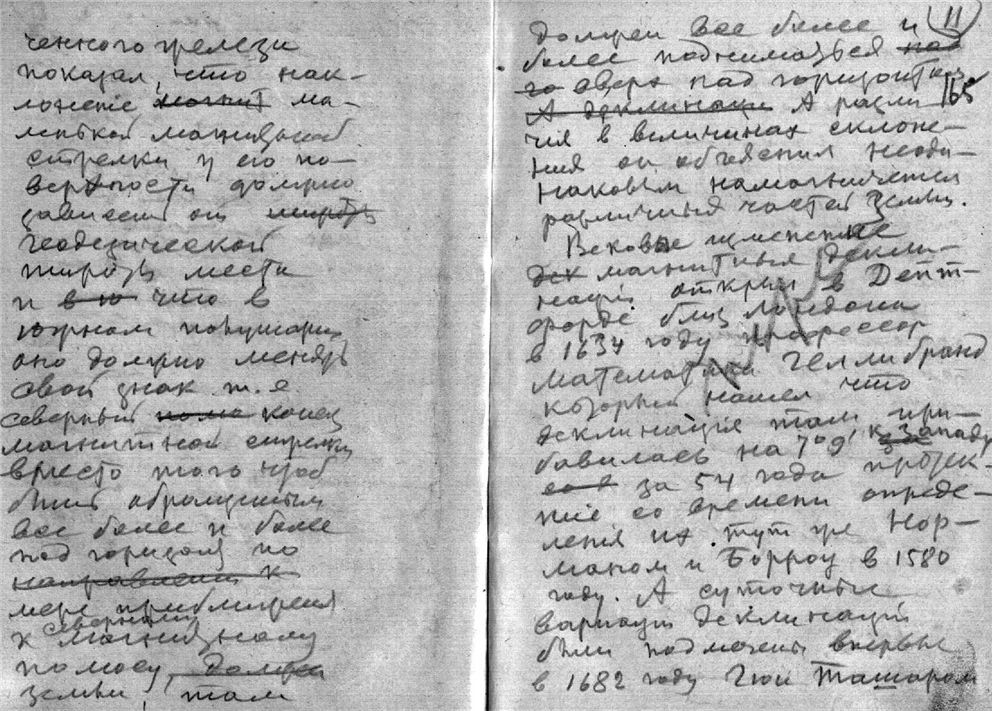 ченного железа
показал, что нак-
лонение магнит ма-
ленькой магнитной
стрелки у его по-
верхности должно
зависеть от широты
геодезической
широты места
и в ю что в
южном полушарии
оно должно менять
свой знак т.е
северный полю конец
магнитной стрелки
вместо того чтоб
быть обращенным
все более и более
под горизонт по
направлению к
мере приближения
северному
к магнитному
полюсу, должен
земли, там
11
должен все более и
более подниматься над
го вверх над горизонтом
165
А деклинации А разли
чия в величинах склоне-
ния он объяснил неоди-
наковым намагничением
различных частей Земли.
Вековые изменения
дек магнитныя декли-
нации открыл в Депт-
форде близ Лондона
в 1634 году профессор
математики Геллибранд
который нашел что
деклинация там при-
бавилась на 7°9' к западу
за 54 года протек-
шие со времени опреде-
ления их тут же Нор-
маном и Борроу в 1580
году. А суточные
вариации деклинаций
были подмечены впервые
в 1682 году Гюи Ташаром